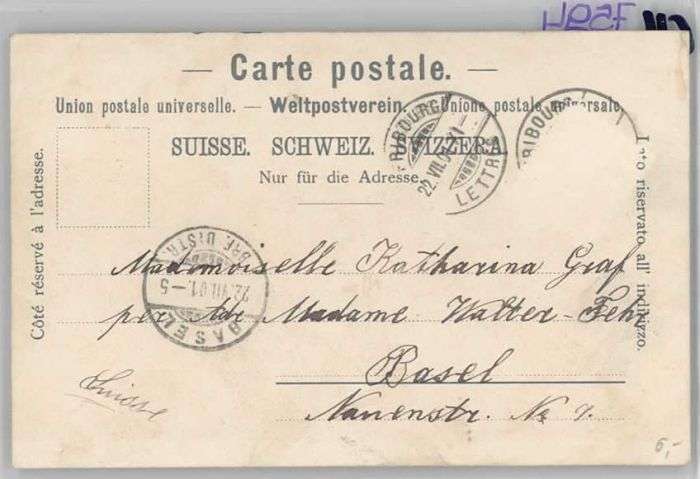 — Carte postale. —
Union postale universelle. — Weltpostverein. — Unione postale universale.
SUISSE. SCHWEIZ. SVIZZERA.
Nur für die Adresse.
Côté réservé à l'adresse.
Lato riservato all' indirizzo.
FRIBOURG
22.VII.01
LETTRES
FRIBOURG
BRF. DISTR.
22.VII.01.-5
BASEL
Mademoiselle Katharina Graf
per Adr. Madame Walter-Fehr
Basel
Nauenstr. No 7.
Suisse
6,-